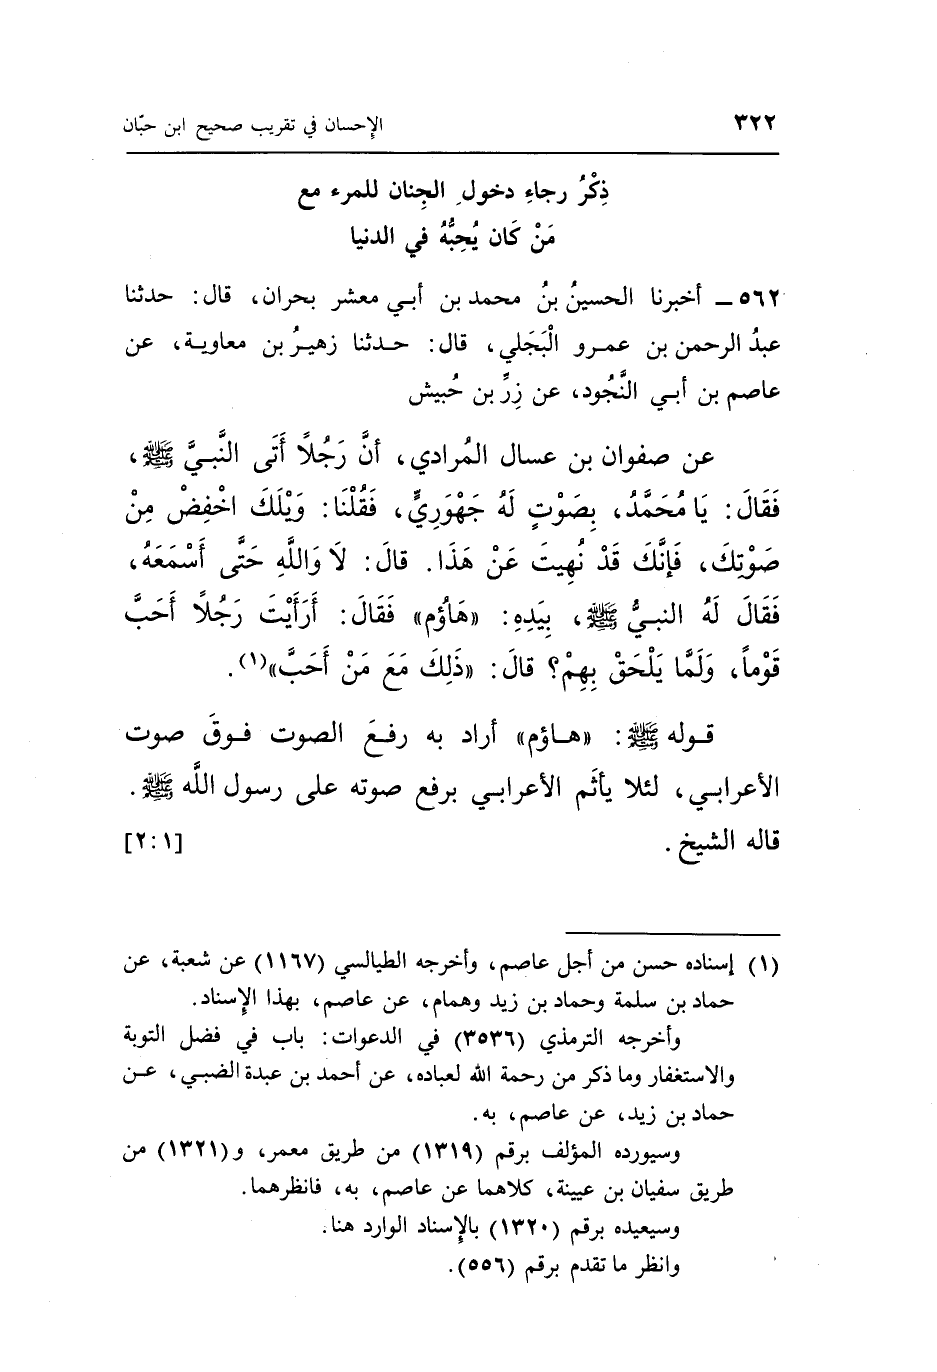 ٣٢٢ الإحسان في تقريب صحيح ابن حبّان
ذِكْرُ رجاءِ دخولِ الجِنان للمرء مع
مَنْ كَان يُحِبُّهُ في الدنيا
٥٦٢ ــ أخبرنا الحسينُ بنُ محمد بن أبي معشر بحران، قال: حدثنا
عبدُ الرحمن بن عمرو الْبَجَلي، قال: حدثنا زهيرُ بن معاوية، عن
عاصم بن أبي النَّجُود، عن زِرِّ بن حُبيش
عن صفوان بن عسال المُرادي، أنَّ رَجُلًا أَتَى النَّبيَّ ﷺ،
فَقَالَ: يَا مُحَمَّدُ، بِصَوْتٍ لَهُ جَهْوَرِيٍّ، فَقُلْنَا: وَيْلَكَ اخْفِضْ مِنْ
صَوْتِكَ، فَإِنَّكَ قَدْ نُهِيتَ عَنْ هَذَا. قالَ: لَا وَاللَّهِ حَتَّى أَسْمَعَهُ،
فَقَالَ لَهُ النبيُّ ﷺ، بِيَدِهِ: «هَاؤُم» فَقَالَ: أَرَأَيْتَ رَجُلًا أَحَبَّ
قَوْماً، وَلَمَّا يَلْحَقْ بِهِمْ؟ قالَ: «ذَلِكَ مَعَ مَنْ أَحَبَّ»(١).
قوله ﷺ: «هاؤم» أراد به رفعَ الصوت فوقَ صوت
الأعرابي، لئلا يأثَم الأعرابي برفع صوته على رسول اللَّه ﷺ.
قاله الشيخ. [٢:١]
(١) إسناده حسن من أجل عاصم، وأخرجه الطيالسي (١١٦٧) عن شعبة، عن
حماد بن سلمة وحماد بن زيد وهمام، عن عاصم، بهذا الإسناد.
وأخرجه الترمذي (٣٥٣٦) في الدعوات: باب في فضل التوبة
والاستغفار وما ذكر من رحمة الله لعباده، عن أحمد بن عبدة الضبي، عن
حماد بن زيد، عن عاصم، به.
وسيورده المؤلف برقم (١٣١٩) من طريق معمر، و(١٣٢١) من
طريق سفيان بن عيينة، كلاهما عن عاصم، به، فانظرهما.
وسيعيده برقم (١٣٢٠) بالإسناد الوارد هنا.
وانظر ما تقدم برقم (٥٥٦).